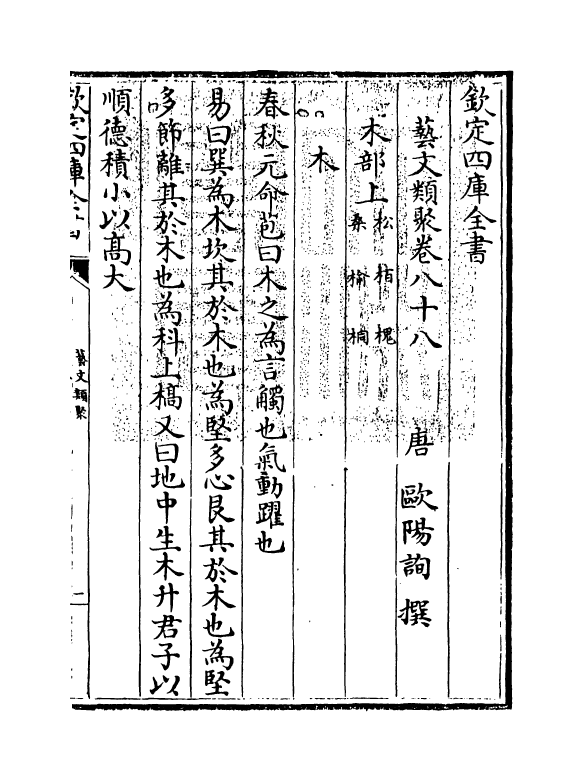 欽定四庫全書
藝文類聚卷八十八　唐　歐陽詢　撰
木部上　松　柏　槐
桑　榆　桐
木
春秋元命苞曰木之為言觸也氣動躍也
易曰巽為木坎其於木也為堅多心艮其於木也為堅
多飾離其於木也為科上槁又曰地中生木升君子以
順德積小以髙大
欽定四庫全書
藝文類聚